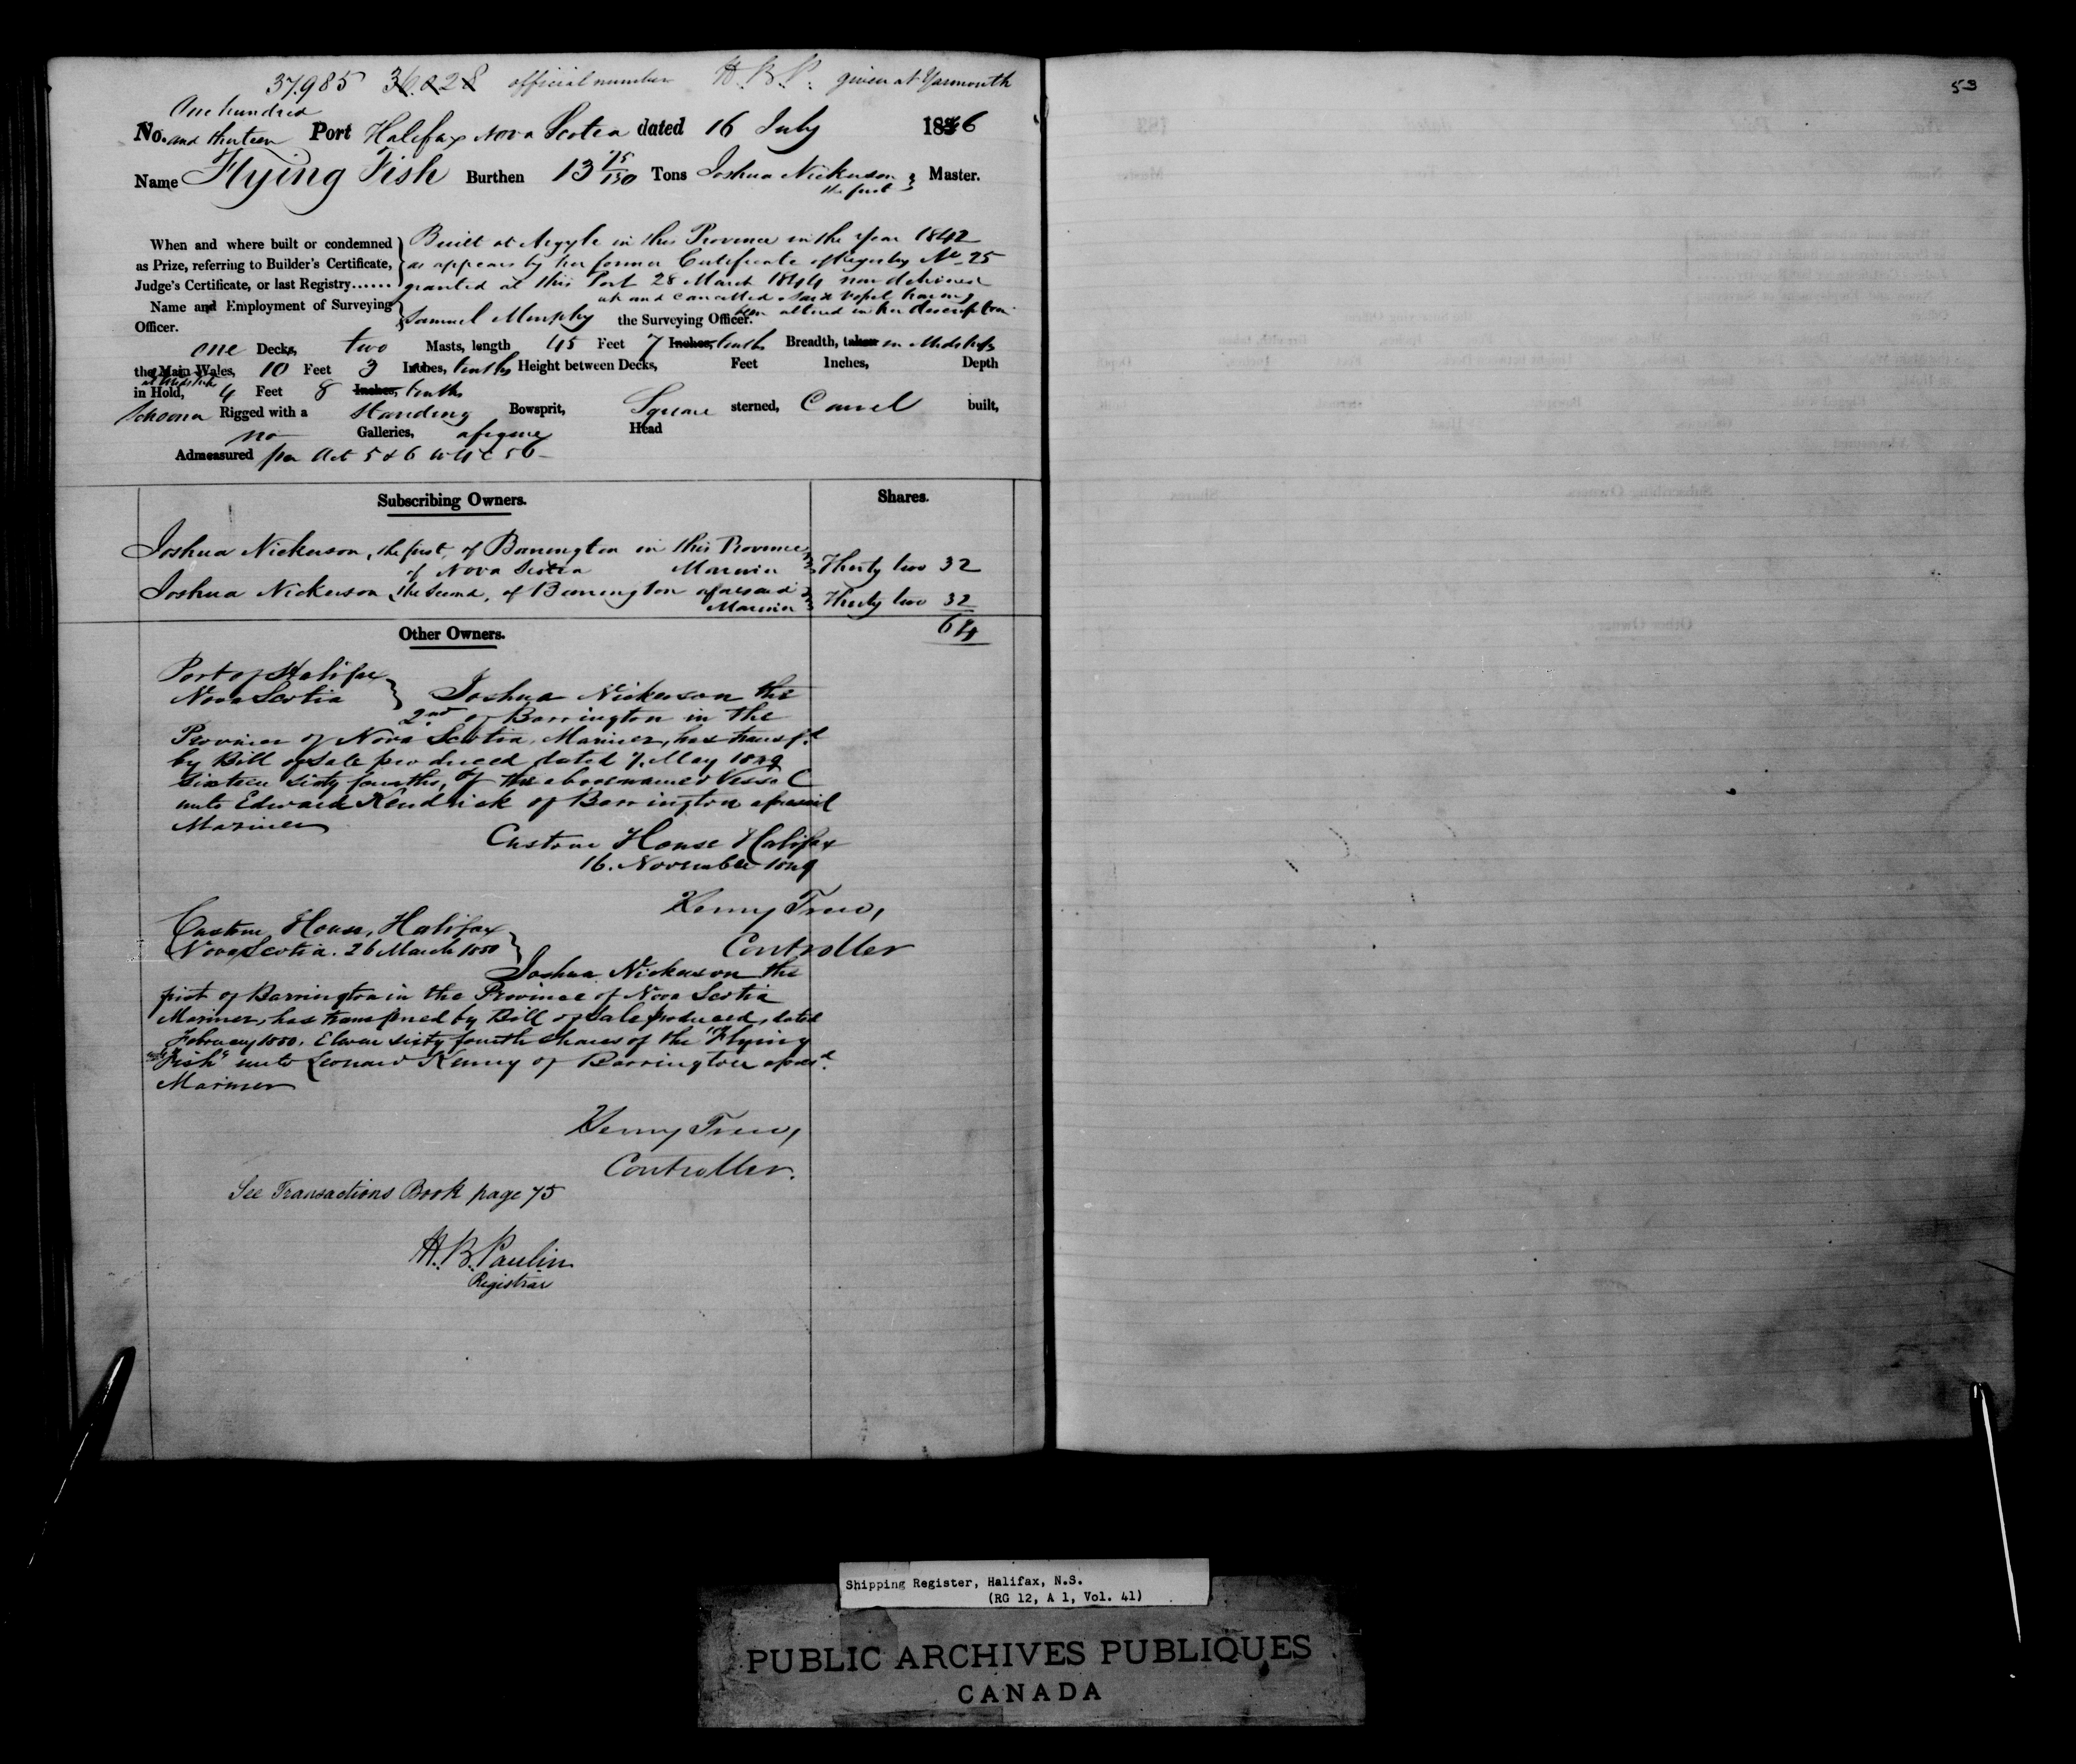 37,985 36,028 official number H.B.P. given at Yarmouth
53
One hundred
No. and thirteen Port Halifax Nova Scotia dated 16 July 1846
Name Flying Fish Burthen 13 75/130 Tons Joshua Nickerson the first Master.
When and where built or condemned as Prize, referring to Builder's Certificate, Judge's Certificate, or last Registry......
Built at Argyle in this Province in the Year 1842
as appears by her former Certificate of Registry No. 25
granted at this Port 28 March 1844 now delivered
up and cancelled said Vessel having
been altered in her description
Name and Employment of Surveying Officer.
Samuel Murphy the Surveying Officer.
one Decks, two Masts, length 45 Feet 7 Inches, tenths Breadth, taken in Midships
the Main Wales, 10 Feet 3 Inches, tenths Height between Decks, Feet Inches, Depth
at Midships
in Hold, 4 Feet 8 Inches, tenths
Schooner Rigged with a Standing Bowsprit, Square sterned, Carvel built,
no Galleries, a figure Head
Admeasured per Act 5 & 6 W 4 C 56
Subscribing Owners.
Shares.
Joshua Nickerson, the first, of Barrington in this Province
of Nova Scotia Mariner Thirty two 32
Joshua Nickerson, the Second, of Barrington aforesaid
Mariner Thirty two 32
64
Other Owners.
Port of Halifax
Nova Scotia
Joshua Nickerson the
2nd of Barrington in the
Province of Nova Scotia, Mariner, has transfd
by Bill of Sale produced dated 7. May 1849
Sixteen Sixty fourths, of the abovenamed Vessel
unto Edward Kendrick of Barrington aforesaid
Mariner
Custom House Halifax
16. November 1849
Henry Trew,
Controller
Custom House, Halifax
Nova Scotia. 26 March 1850
Joshua Nickerson the
first of Barrington in the Province of Nova Scotia
Mariner, has transferred by Bill of Sale produced, dated
February 1850, Eleven Sixty fourth Shares of the "Flying
Fish" unto Leonard Kenny of Barrington aforesd.
Mariner
Henry Trew,
Controller.
See Transactions Book page 75
H.B. Paulin
Registrar
Shipping Register, Halifax, N.S.
(RG 12, A 1, Vol. 41)
PUBLIC ARCHIVES PUBLIQUES
CANADA